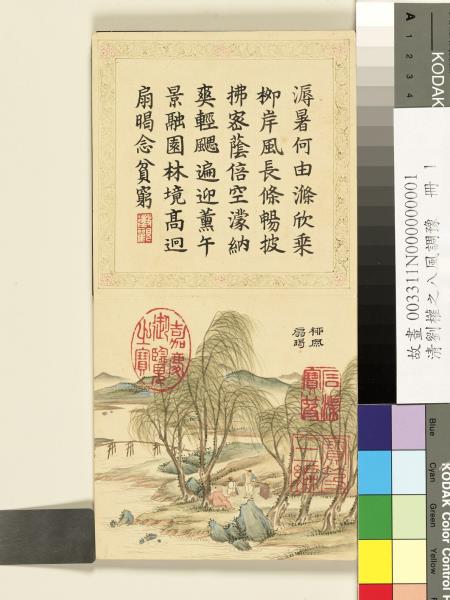 溽暑何由滌欣乘
柳岸風長條暢披
拂密蔭倍空濛納
爽輕颸遍迎薰午
景融園林境髙迥
扇暍念貧窮
柳風
扇暍
嘉慶御覽之寶
故畫 003311N000000001
清劉權之八風調豫 冊 1
KODAK
A 1 2 3 4
KODAK Color Control P
Blue
Cyan
Green
Yellow